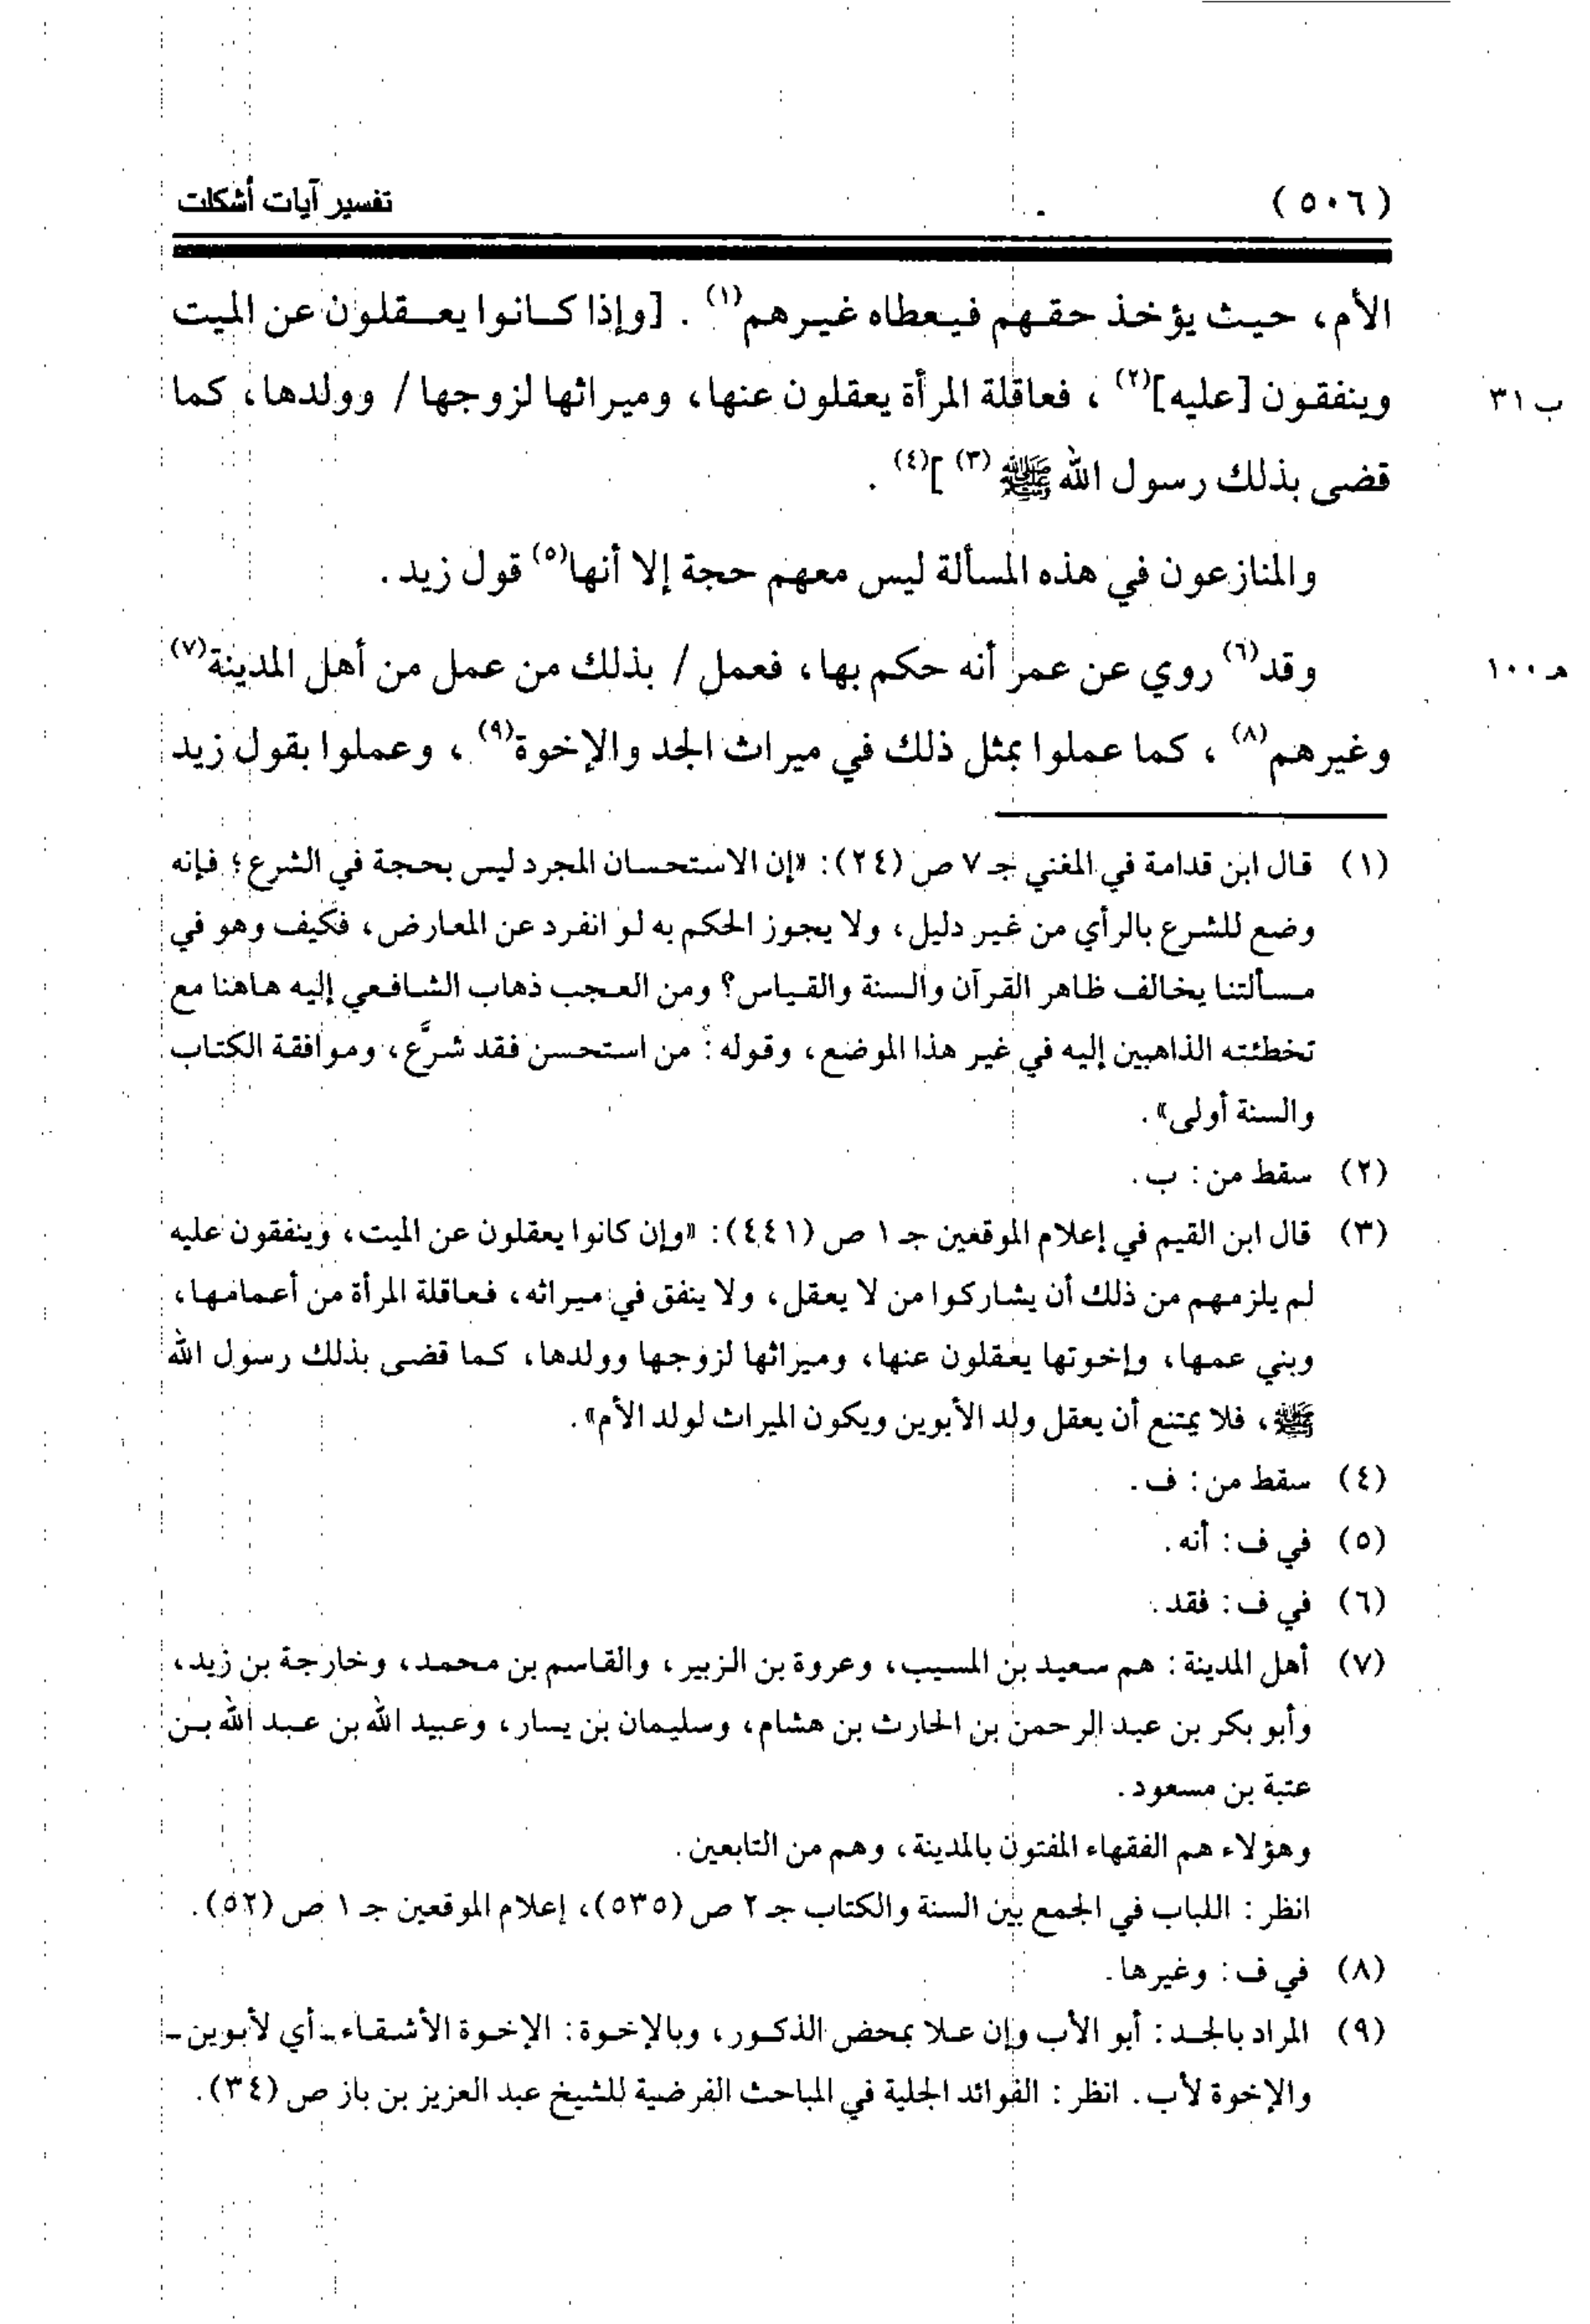 (٥٠٦) تفسير آيات أشكلت
الأم، حيث يؤخذ حقهم فيعطاه غيرهم(١) . [وإذا كانوا يعقلون عن الميت
وينفقون [عليه](٢) ، فعاقلة المرأة يعقلون عنها، وميراثها لزوجها / وولدها، كما
ب ٣١
قضى بذلك رسول الله ﷺ(٣) ](٤) .
والمنازعون في هذه المسألة ليس معهم حجة إلا أنها(٥) قول زيد .
وقد(٦) روي عن عمر أنه حكم بها، فعمل / بذلك من عمل من أهل المدينة(٧)
هـ ١٠٠
وغيرهم(٨) ، كما عملوا بمثل ذلك في ميراث الجد والإخوة(٩) ، وعملوا بقول زيد
(١) قال ابن قدامة في المغني جـ ٧ ص (٢٤): «إن الاستحسان المجرد ليس بحجة في الشرع؛ فإنه
وضع للشرع بالرأي من غير دليل، ولا يجوز الحكم به لو انفرد عن المعارض، فكيف وهو في
مسألتنا يخالف ظاهر القرآن والسنة والقياس؟ ومن العجب ذهاب الشافعي إليه هاهنا مع
تخطئته الذاهبين إليه في غير هذا الموضع، وقوله: من استحسن فقد شرَّع، وموافقة الكتاب
والسنة أولى».
(٢) سقط من: ب.
(٣) قال ابن القيم في إعلام الموقعين جـ ١ ص (٤٤١): «وإن كانوا يعقلون عن الميت، وينفقون عليه
لم يلزمهم من ذلك أن يشاركوا من لا يعقل، ولا ينفق في ميراثه، فعاقلة المرأة من أعمامها،
وبني عمها، وإخوتها يعقلون عنها، وميراثها لزوجها وولدها، كما قضى بذلك رسول الله
ﷺ، فلا يمتنع أن يعقل ولد الأبوين ويكون الميراث لولد الأم».
(٤) سقط من: ف.
(٥) في ف: أنه.
(٦) في ف: فقد.
(٧) أهل المدينة: هم سعيد بن المسيب، وعروة بن الزبير، والقاسم بن محمد، وخارجة بن زيد،
وأبو بكر بن عبد الرحمن بن الحارث بن هشام، وسليمان بن يسار، وعبيد الله بن عبد الله بن
عتبة بن مسعود.
وهؤلاء هم الفقهاء المفتون بالمدينة، وهم من التابعين.
انظر: اللباب في الجمع بين السنة والكتاب جـ ٢ ص (٥٣٥)، إعلام الموقعين جـ ١ ص (٥٢).
(٨) في ف: وغيرها.
(٩) المراد بالجد: أبو الأب وإن علا بمحض الذكور، وبالإخوة: الإخوة الأشقاء ـ أي لأبوين ـ
والإخوة لأب. انظر: الفوائد الجلية في المباحث الفرضية للشيخ عبد العزيز بن باز ص (٣٤).